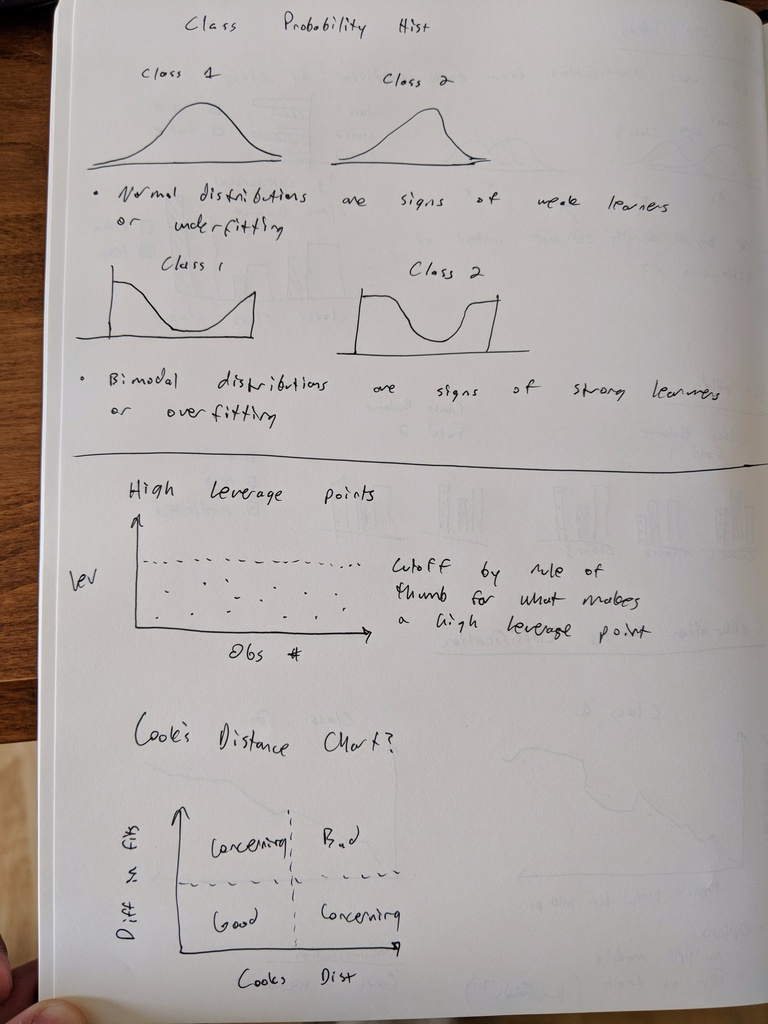 Class Probability Hist
Class 1
Class 2
• Normal distributions are signs of weak learners
or underfitting
Class 1
Class 2
• Bimodal distributions are signs of strong learners
or overfitting
High leverage points
Lev
Obs #
Cutoff by rule of
thumb for what makes
a high leverage point
Cook's Distance Chart?
Diff in fits
Concerning
Bad
Good
Concerning
Cooks Dist